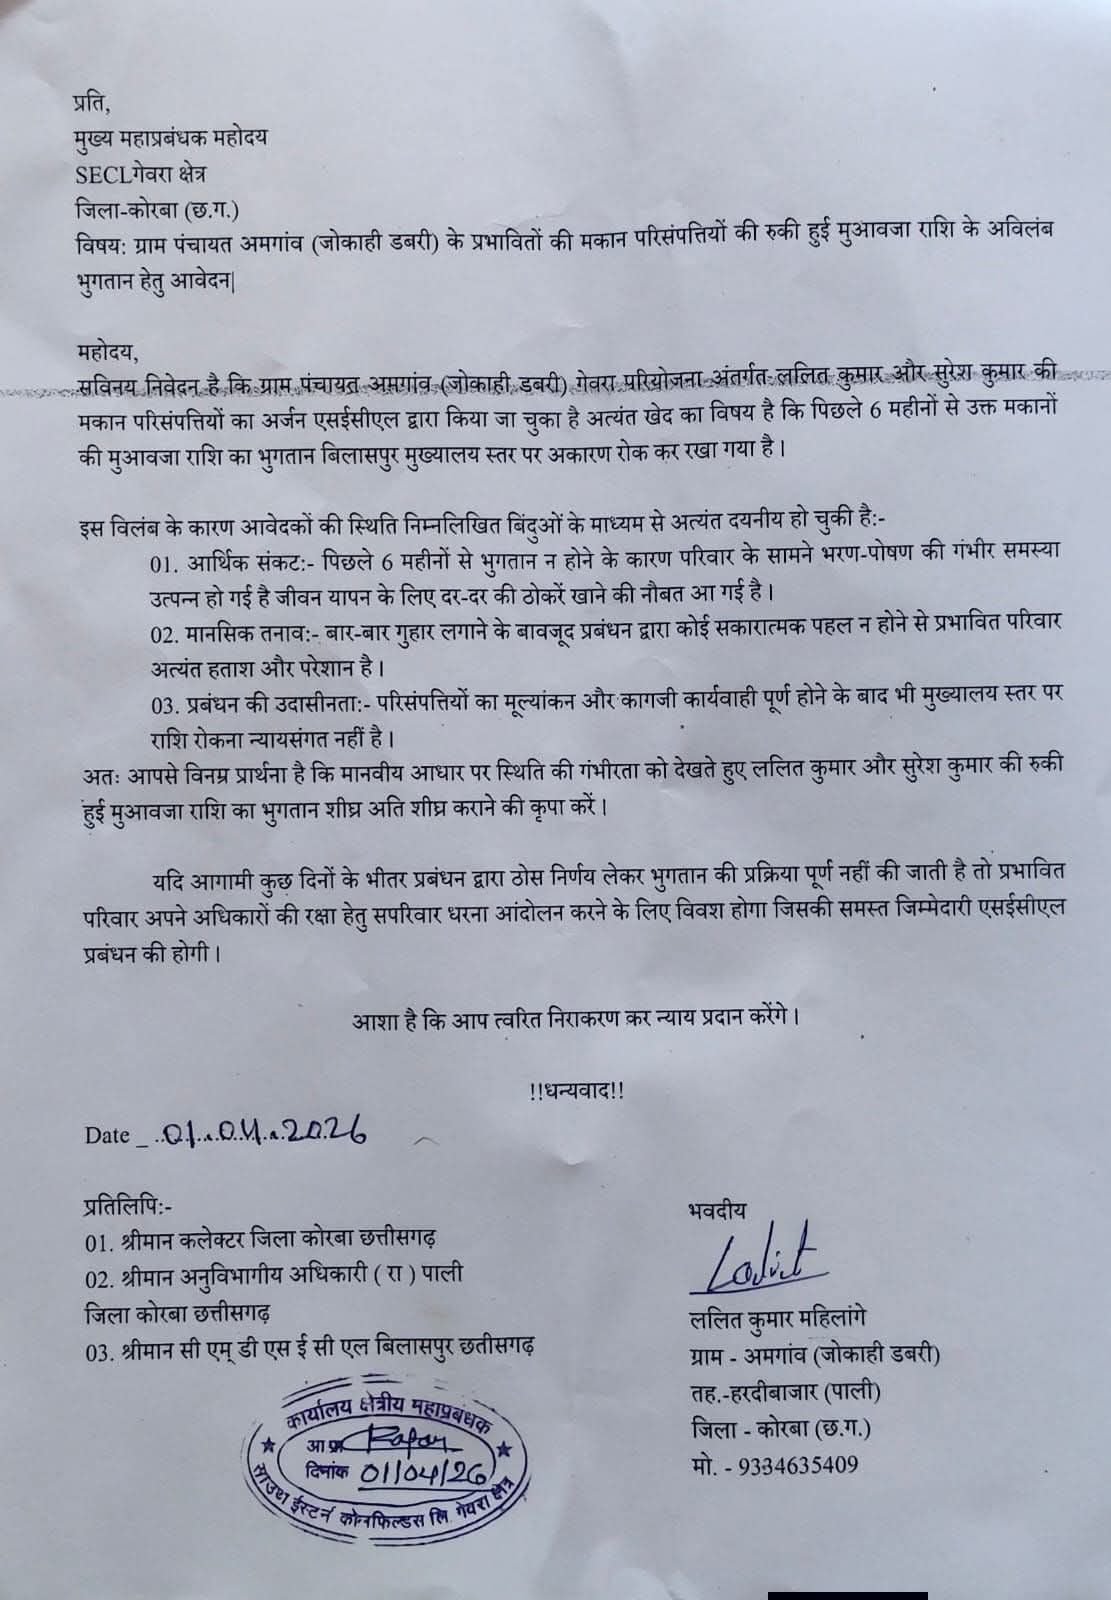 प्रति,
मुख्य महाप्रबंधक महोदय
SECLगेवरा क्षेत्र
जिला-कोरबा (छ.ग.)
विषय: ग्राम पंचायत अमगांव (जोकाही डबरी) के प्रभावितों की मकान परिसंपत्तियों की रुकी हुई मुआवजा राशि के अविलंब
भुगतान हेतु आवेदन|
महोदय,
सविनय निवेदन है कि ग्राम पंचायत अमगांव (जोकाही डबरी) गेवरा परियोजना अंतर्गत ललित कुमार और सुरेश कुमार की
मकान परिसंपत्तियों का अर्जन एसईसीएल द्वारा किया जा चुका है अत्यंत खेद का विषय है कि पिछले 6 महीनों से उक्त मकानों
की मुआवजा राशि का भुगतान बिलासपुर मुख्यालय स्तर पर अकारण रोक कर रखा गया है।
इस विलंब के कारण आवेदकों की स्थिति निम्नलिखित बिंदुओं के माध्यम से अत्यंत दयनीय हो चुकी है:-
01. आर्थिक संकट:- पिछले 6 महीनों से भुगतान न होने के कारण परिवार के सामने भरण-पोषण की गंभीर समस्या
उत्पन्न हो गई है जीवन यापन के लिए दर-दर की ठोकरें खाने की नौबत आ गई है।
02. मानसिक तनाव:- बार-बार गुहार लगाने के बावजूद प्रबंधन द्वारा कोई सकारात्मक पहल न होने से प्रभावित परिवार
अत्यंत हताश और परेशान है।
03. प्रबंधन की उदासीनता:- परिसंपत्तियों का मूल्यांकन और कागजी कार्यवाही पूर्ण होने के बाद भी मुख्यालय स्तर पर
राशि रोकना न्यायसंगत नहीं है।
अतः आपसे विनम्र प्रार्थना है कि मानवीय आधार पर स्थिति की गंभीरता को देखते हुए ललित कुमार और सुरेश कुमार की रुकी
हुई मुआवजा राशि का भुगतान शीघ्र अति शीघ्र कराने की कृपा करें।
यदि आगामी कुछ दिनों के भीतर प्रबंधन द्वारा ठोस निर्णय लेकर भुगतान की प्रक्रिया पूर्ण नहीं की जाती है तो प्रभावित
परिवार अपने अधिकारों की रक्षा हेतु सपरिवार धरना आंदोलन करने के लिए विवश होगा जिसकी समस्त जिम्मेदारी एसईसीएल
प्रबंधन की होगी।
आशा है कि आप त्वरित निराकरण कर न्याय प्रदान करेंगे।
!!धन्यवाद!!
Date _ 01.04.2026
प्रतिलिपि:-
01. श्रीमान कलेक्टर जिला कोरबा छत्तीसगढ़
02. श्रीमान अनुविभागीय अधिकारी ( रा ) पाली
जिला कोरबा छत्तीसगढ़
03. श्रीमान सी एम् डी एस ई सी एल बिलासपुर छतीसगढ़
भवदीय
Lalit
ललित कुमार महिलांगे
ग्राम - अमगांव (जोकाही डबरी)
तह.-हरदीबाजार (पाली)
जिला - कोरबा (छ.ग.)
मो. - 9334635409
कार्यालय क्षेत्रीय महाप्रबंधक
दिनांक 01/04/26
साउथ ईस्टर्न कोलफिल्डस लि. गेवरा क्षेत्र